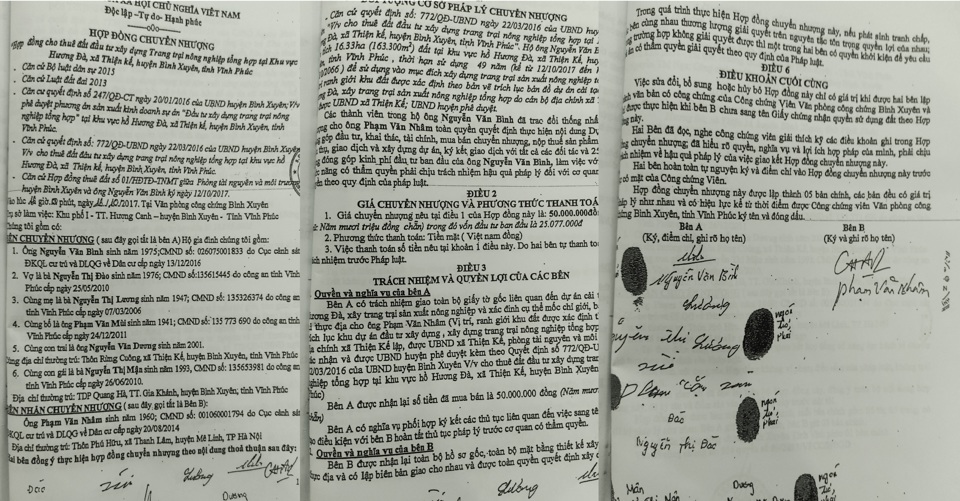 XÃ HỘI CHỦ NGHĨA VIỆT NAM
Độc lập - Tự do - Hạnh phúc
HỢP ĐỒNG CHUYỂN NHƯỢNG
Hợp đồng cho thuê đất đầu tư xây dựng Trang trại nông nghiệp tổng hợp tại Khu vực
Hương Đà, xã Thiện Kế, huyện Bình Xuyên, tỉnh Vĩnh Phúc
- Căn cứ Bộ luật dân sự 2015
- Căn cứ Luật đất đai 2013
- Căn cứ quyết định số 247/QĐ-CT ngày 20/01/2016 của UBND huyện Bình Xuyên; V/v
phê duyệt phương án sản xuất kinh doanh dự án "Đầu tư xây dựng trang trại
nông nghiệp tổng hợp" tại khu vực hồ Hương Đà, xã Thiện Kế, huyện Bình Xuyên, tỉnh
Vĩnh Phúc.
- Căn cứ quyết định số: 772/QĐ-UBND ngày 22/03/2016 của UBND huyện Bình Xuyên
V/v cho thuê đất đầu tư xây dựng trang trại nông nghiệp tổng hợp tại khu vực hồ
Hương Đà, xã Thiện Kế, huyện Bình Xuyên, tỉnh Vĩnh Phúc.
- Căn cứ Hợp đồng thuê đất số 01/HĐTĐ-TNMT giữa Phòng tài nguyên và môi trường
huyện Bình Xuyên và ông Nguyễn Văn Bình ký ngày 12/10/2017.
phút, ngày /2017. Tại Văn phòng công chứng Bình Xuyên
trụ sở làm việc: Khu phố I - TT. Hương Canh – huyện Bình Xuyên - Tỉnh Vĩnh Phúc
Chúng tôi gồm có:
BÊN CHUYỂN NHƯỢNG ( sau đây gọi tắt là bên A) Hộ gia đình chúng tôi gồm:
1. Ông Nguyễn Văn Bình sinh năm 1975;CMND số: 026075001833 do Cục cảnh sát
ĐKQL cư trú và DLQG về Dân cư cấp ngày 13/12/2016
2. Vợ là bà Nguyễn Thị Đào sinh năm 1976; CMND số:135615445 do công an tỉnh
Vĩnh Phúc cấp ngày 25/05/2010
3. Cùng mẹ là bà Nguyễn Thị Lương sinh năm 1947; CMND số: 135326374 do công an
tỉnh Vĩnh Phúc cấp ngày 07/03/2006
4. Cùng bố là ông Nguyễn Văn Mùi sinh năm 1941; CMND số: 135 773 690 do công an tỉnh
Vĩnh Phúc cấp ngày 24/12/2011
5. Cùng con trai là ông Nguyễn Văn Dương sinh năm 2001.
Cùng địa chỉ thường trú: Thôn Rừng Cuông, xã Thiện Kế, huyện Bình Xuyên, tỉnh Vĩnh Phúc
6. Cùng con gái là bà Nguyễn Thị Mận sinh năm 1993, CMND số: 135653981 do công an
tỉnh Vĩnh Phúc cấp ngày 26/06/2010.
Địa chỉ thường trú: TDP Quang Hà, TT. Gia Khánh, huyện Bình Xuyên, tỉnh Vĩnh Phúc
BÊN NHẬN CHUYỂN NHƯỢNG ( sau đây gọi tắt là Bên B):
Ông Phạm Văn Nhâm sinh năm 1960; CMND số: 001060001794 do Cục cảnh sát
ĐKQL cư trú và DLQG về Dân cư cấp ngày 20/08/2014
Địa chỉ thường trú: Thôn Phú Hữu, xã Thanh Lâm, huyện Mê Linh, TP Hà Nội
Hai bên đồng ý thực hiện hợp đồng chuyển nhượng theo nội dung thoả thuận sau đây:
Đào
Dương
1
TƯỢNG CƠ SỞ PHÁP LÝ CHUYỂN NHƯỢNG
Căn cứ quyết định số: 772/QĐ-UBND ngày 22/03/2016 của UBND huyện
"V/v cho thuê đất đầu tư xây dựng trang trại nông nghiệp tổng hợp tại
Đà, xã Thiện Kế, huyện Bình Xuyên, tỉnh Vĩnh Phúc". Hộ ông Nguyễn Văn B
tích 16.33ha (163.300m²) đất tại khu vực hồ Hương Đà, xã Thiện Kế, huyện
, tỉnh Vĩnh Phúc , thời hạn sử dụng 49 năm (kể từ 12/10/2017 đến
/2066 ) để sử dụng vào mục đích xây dựng trang trại sản xuất nông nghiệp
ranh giới khu đất được xác định theo bản vẽ trích lục bản đồ dự án cải tạo
Đà, xây trang trại sản xuất nông nghiệp tổng hợp do cán bộ địa chính xã
được UBND xã Thiện Kế; UBND huyện phê duyệt.
Các thành viên trong hộ ông Nguyễn Văn Bình đã trao đổi thống nhất
cho ông Phạm Văn Nhâm toàn quyền quyết định thực hiện nội dung Dự
góp đầu tư, khai thác, mua bán chuyển nhượng, nộp thuế sản phẩm
, giao dịch và xây dựng dự án, ký kết giao dịch với tất cả các đối tác và
đóng góp kinh phí đầu tư ban đầu của ông Nguyễn Văn Bình, làm việc với
năng có thẩm quyền phải chịu trách nhiệm hậu quả pháp lý đối với cơ quan
theo quy định của pháp luật.
ĐIỀU 2
GIÁ CHUYỂN NHƯỢNG VÀ PHƯƠNG THỨC THANH TOÁ
1. Giá chuyển nhượng nêu tại điều 1 của Hợp đồng này là: 50.000.000đồ
Năm mươi triệu đồng chẵn) trong đó vốn đầu tư ban đầu là 25.077.000đ
2. Phương thức thanh toán: Tiền mặt ( Việt nam đồng)
3. Việc thanh toán số tiền nêu tại khoản 1 điều này. Do hai bên tự thanh toá
trách nhiệm trước Pháp luật.
ĐIỀU 3
TRÁCH NHIỆM VÀ QUYỀN LỢI CỦA CÁC BÊN
Quyền và nghĩa vụ của bên A
Bên A có trách nhiệm giao toàn bộ giấy tờ gốc liên quan đến dự án cải
Hương Đà, xây trang trại sản xuất nông nghiệp và xác định cụ thể mốc chỉ giới,
thực địa cho ông Phạm Văn Nhâm (Vị trí, ranh giới khu đất được xác định
trích lục khu dự án đầu tư xây dựng , xây dựng trang trại nông nghiệp tổng hợp
địa chính xã Thiện Kế lập, được UBND xã Thiện Kế, phòng tài nguyên và môi
xác nhận và được UBND huyện phê duyệt kèm theo Quyết định số 772/QĐ-U
22/03/2016 của UBND huyện Bình Xuyên V/v cho thuê đất đầu tư xây dựng tran
nghiệp tổng hợp tại khu vực hồ Hương Đà, xã Thiện Kế, huyện Bình Xuyên, tỉnh
Phúc)
Bên A được nhận lại số tiền đã mua bán là 50.000.000 đồng (Năm mươi
chẵn)
Bên A có nghĩa vụ phối hợp ký kết các thủ tục liên quan đến việc sang tê
tạo điều kiện với bên B hoàn tất thủ tục pháp lý trước cơ quan có thẩm quyền.
Quyền và nghĩa vụ của bên B
Bên B được nhận lại toàn bộ hồ sơ gốc, toàn bộ mặt bằng thiết kế xây
thực địa và có lập biên bản bàn giao cho nhau và được toàn quyền quyết định xây
Dương
Trong quá trình thực hiện Hợp đồng chuyển nhượng này, nếu phát sinh tranh chấp,
bên cùng nhau thương lượng giải quyết trên nguyên tắc tôn trọng quyền lợi của nhau;
trường hợp không giải quyết được thì một trong hai bên có quyền khởi kiện để yêu cầu
án có thẩm quyền giải quyết theo quy định của Pháp luật.
ĐIỀU 6
ĐIỀU KHOẢN CUỐI CÙNG
Việc sửa đổi, bổ sung hoặc hủy bỏ Hợp đồng này chỉ có giá trị khi được hai bên lập
thành văn bản có công chứng của Công chứng Viên Văn phòng công chứng Bình Xuyên và
được thực hiện khi bên B chưa sang tên Giấy chứng nhận quyền sử dụng đất theo Hợp
này.
Hai Bên đã đọc, nghe công chứng viên giải thích kỹ các điều khoản ghi trong Hợp
chuyển nhượng; đã hiểu rõ quyền, nghĩa vụ và lợi ích hợp pháp của mình, phải chịu
nhiệm về hậu quả pháp lý của việc giao kết Hợp đồng chuyển nhượng này.
Hai bên hoàn toàn tự nguyện ký và điểm chỉ vào Hợp đồng chuyển nhượng này trước
có mặt của Công Chứng Viên.
Hợp đồng chuyển nhượng này được lập thành 05 bản chính, các bản đều có giá trị
pháp lý như nhau và có hiệu lực kể từ thời điểm được Công chứng viên Văn phòng công
chứng Bình Xuyên, tỉnh Vĩnh Phúc ký tên và đóng dấu.
Bên A
(Ký, điểm chỉ, ghi rõ họ tên)
Bên B
(Ký và ghi rõ họ tên)
Nguyễn Văn Bình
Phạm Văn Nhâm
Đào
Nguyễn Thị Đào
Mận
Dương
ngón
trỏ
phải
ngón
trỏ
phải